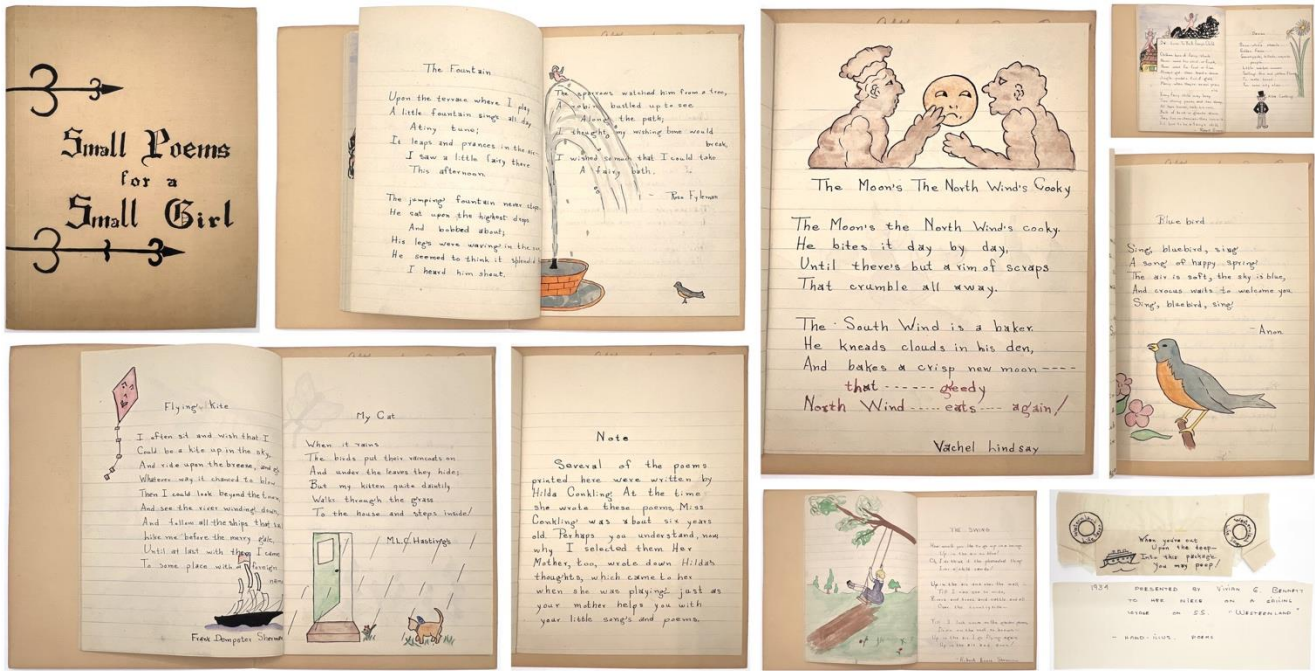 Small Poems
for a
Small Girl
The Fountain
Upon the terrace where I play
A little fountain sings all day
A tiny tune;
It leaps and prances in the air—
I saw a little fairy there
This afternoon.
The jumping fountain never stops
He sat upon the highest drops
And bobbed about;
His legs were waving in the
He seemed to think it splendid
I heard him shout.
The sparrows watched him from a tree,
A robin bustled up to see
Along the path;
I thought my wishing bone would
break
I wished so much that I could take
A fairy bath.
- Rose Fyleman
The Moon's The North Wind's Cooky
The Moon's the North Wind's cooky.
He bites it day by day,
Until there's but a rim of scraps
That crumble all away.
The South Wind is a baker.
He kneads clouds in his den,
And bakes a crisp new moon ----
that ------ geedy
North Wind ---- eats --- again!
Vachel Lindsay
Blue bird
Sing, bluebird, sing
A song of happy spring!
The air is soft, the sky is blue,
And crocus waits to welcome you
Sing, bluebird, sing!
- Anon.
Flying Kite
I often sit and wish that I
Could be a kite up in the sky,
And ride upon the breeze, and go
Whatever way it chanced to blow
Then I could look beyond the town,
And see the river winding down,
And follow all the ships that sail
Like me before the merry gale,
Until at last with them I came
To some place with a foreign
name
Frank Dempster Sherman
My Cat
When it rains
The birds put their raincoats on
And under the leaves they hide;
But my kitten quite daintily
Walks through the grass
To the house and steps inside!
M.L.C. Hastings
Note
Several of the poems
printed here were written by
Hilda Conkling At the time
she wrote these poems, Miss
Conkling was about six years
old Perhaps you understand, now
why I selected them Her
Mother, too, wrote down Hilda's
thoughts, which came to her
when she was playing just as
your mother helps you with
your little songs and poems.
THE SWING
How would you like to go up in a swing
Up in the air so blue!
Oh, I do think it the pleasantest thing
Ever a child can do!
Up in the air and over the wall
Till I can see so wide,
Rivers and trees and cattle and all
Over the countryside
Till I look down on the garden green
Down on the roof so brown
Up in the air I go flying again
Up in the air and down!
- Robert Louis Stevenson
When you're out
Upon the deep—
Into this package
You may peep!
1934 PRESENTED BY VIVIAN G. BENNETT
TO HER NIECE ON A
VOYAGE ON S.S. "WESTERNLAND"
- POEMS